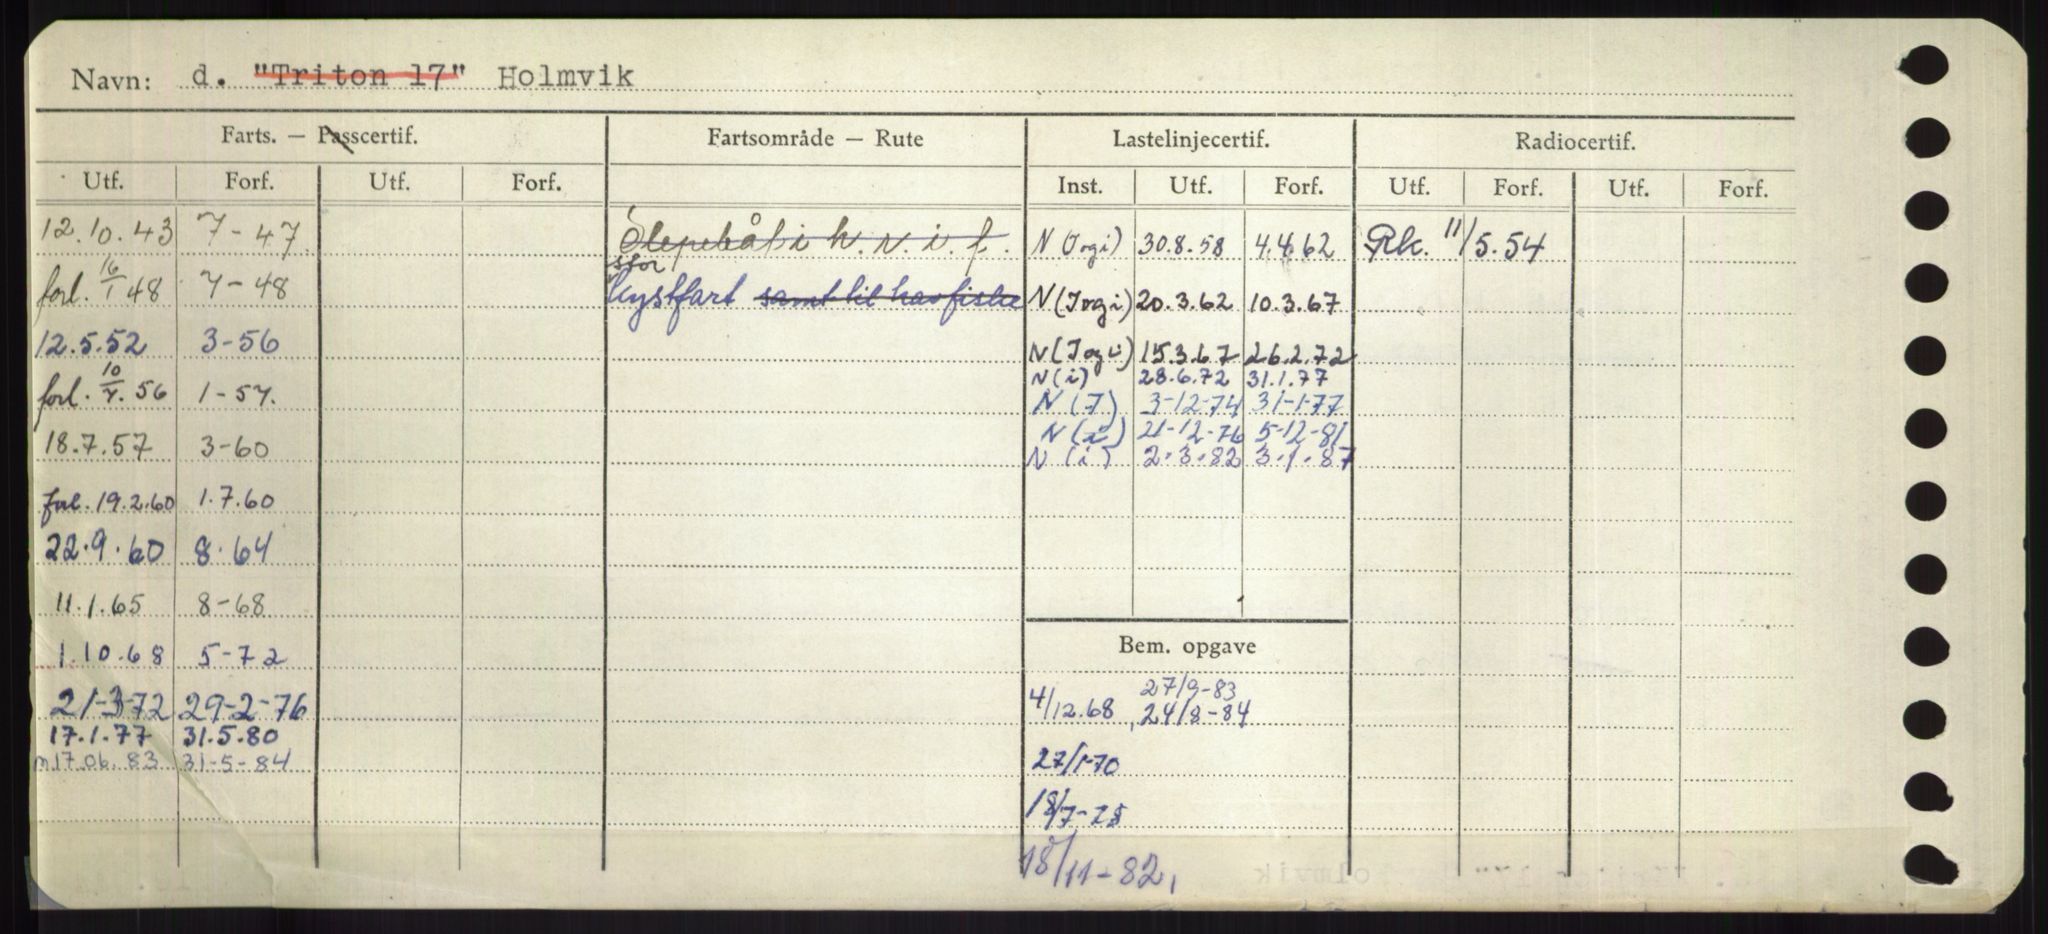 Navn: d. "Triton 17" Holmvik
Farts. — Passcertif. Fartsområde — Rute Lastelinjecertif. Radiocertif.
Utf. Forf. Utf. Forf. Inst. Utf. Forf. Utf. Forf. Utf. Forf.
12.10.43 7-47. Slepebåt i h.v.i.f. N (Jogi) 30.8.58 4.4.62 Rk. 11/5.54
stor
forl. 16/1 48 7-48 kystfart samt til havfiske N (Jogi) 20.3.62 10.3.67
12.5.52 3-56 N (Jogi) 15.3.67 26.2.72
N (i) 28.6.72 31.1.77
forl. 10/7. 56 1-57. N (J) 3-12-74 31-1-77
N (i) 21-12-76 5-12-81
18.7.57 3-60 N (i) 2.3.82 3.1.87
forl. 19.2.60 1.7.60
22.9.60 8.64
11.1.65 8-68
Bem. opgave
1.10.68 5-72
27/9-83
21-3-72 29-2-76 4/12.68, 24/8-84
17.1.77 31.5.80
m 17.06.83 31-5-84 27/1-70
18/7-75
18/11-82,